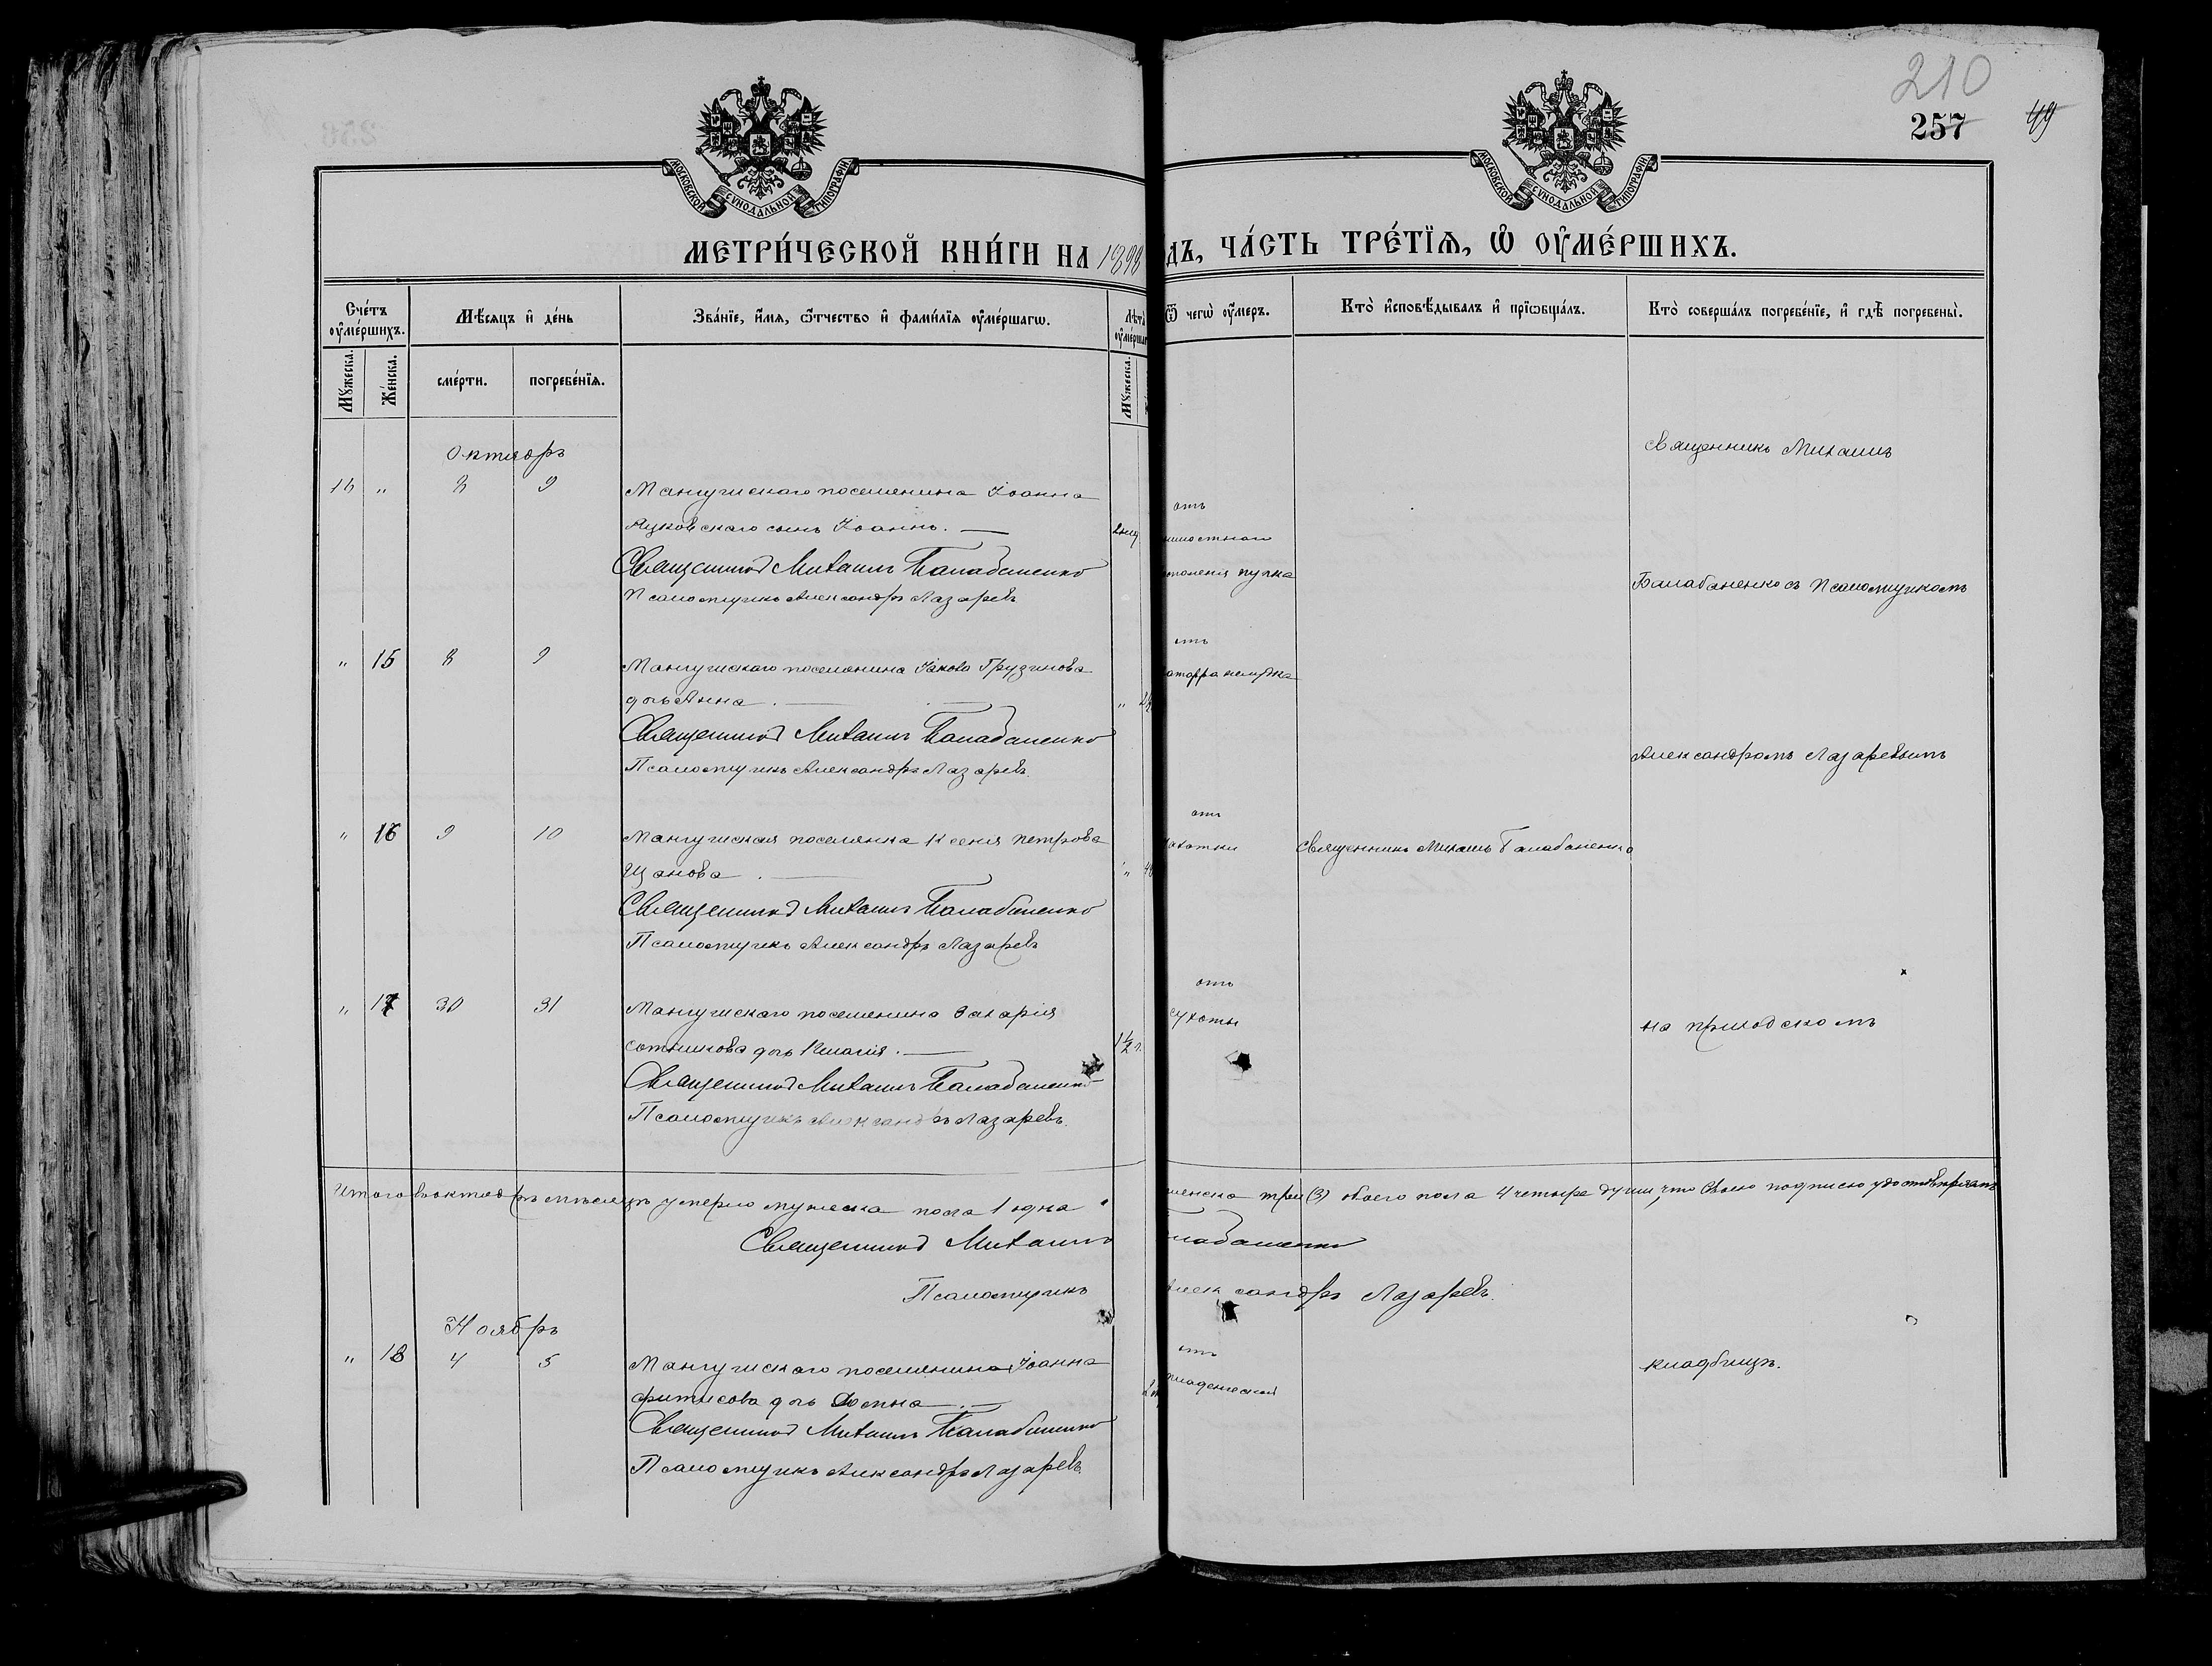 210
257
49
МОСКОВСКОЙ СѴНОДАЛЬНОЙ ТИПОГРАФІИ
МОСКОВСКОЙ СѴНОДАЛЬНОЙ ТИПОГРАФІИ
МЕТРИ́ЧЕСКОЙ КНИ́ГИ НА 1898
ДЪ, ЧА́СТЬ ТРЕ́ТЇѦ, Ѽ ОУ҆МЕ́РШИХЪ.
Сче́тъ оу҆ме́ршихъ.
Мѣ́сяцъ и҆ де́нь
Зва́нїе, и҆́мѧ, ѻ҆́тчество и҆ фами́лїѧ оу҆ме́ршагѡ.
Лѣтъ оу҆ме́рша
Ѿ чегѡ̀ оу҆́мер.
Кто̀ и҆сповѣ́дывалъ и҆ прїѡбща́лъ.
Кто̀ соверша́лъ погребе́нїе, и҆ гдѣ̀ погребены̀.
Мꙋ́жеска.
Же́нска.
сме́рти.
погребе́нїѧ.
Мꙋ́жеска.
Октябрь
16 " 8 9
Мангушскаго поселянина Іоанна
Яцковскаго сынъ Іоаннъ.
Священникъ Михаилъ Балабаненко
Псаломщикъ Александръ Лазаревъ
отъ
пупка
Священникъ Михаилъ
Балабаненко съ Псаломщикомъ
" 15 8 9
Мангушскаго поселянина Іакова Грузинова
дочь Анна.
Священникъ Михаилъ Балабаненко
Псаломщикъ Александръ Лазаревъ.
отъ
атарра желудка
Александромъ Лазаревымъ
" 16 9 10
Мангушская поселянка Ксенія Петрова
Щанова.
Священникъ Михаилъ Балабаненко
Псаломщикъ Александръ Лазаревъ
отъ
ахотки
Священникъ Михаилъ Балабаненко
" 17 30 31
Мангушскаго поселянина Захарія
Сотникова дочь
1½ г.
Священникъ Михаилъ Балабаненко
Псаломщикъ Александръ Лазаревъ.
отъ
сухоты
на приходскомъ
Итого въ октябрѣ мѣсяцѣ умерло мужеска пола 1 одна
женска три (3) обоего пола 4 четыре души, что своею подписью удостовѣряютъ
Священникъ Михаилъ
лабаненко
Псаломщикъ
Александръ Лазаревъ.
Ноябрь
" 18 4 5
Мангушскаго поселянина Іоанна
Фитисова дочь Домна.
Священникъ Михаилъ Балабаненко
Псаломщикъ Александръ Лазаревъ.
отъ
младенческой
кладбищѣ.